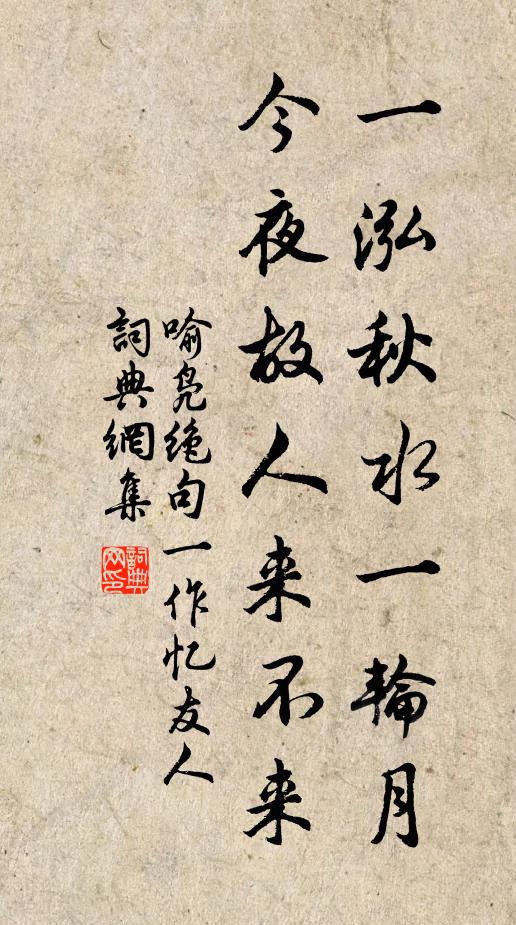 一泓秋水一輪月
今夜故人来不来
喻凫绝句一作忆友人
詞典網集
詞典
网印